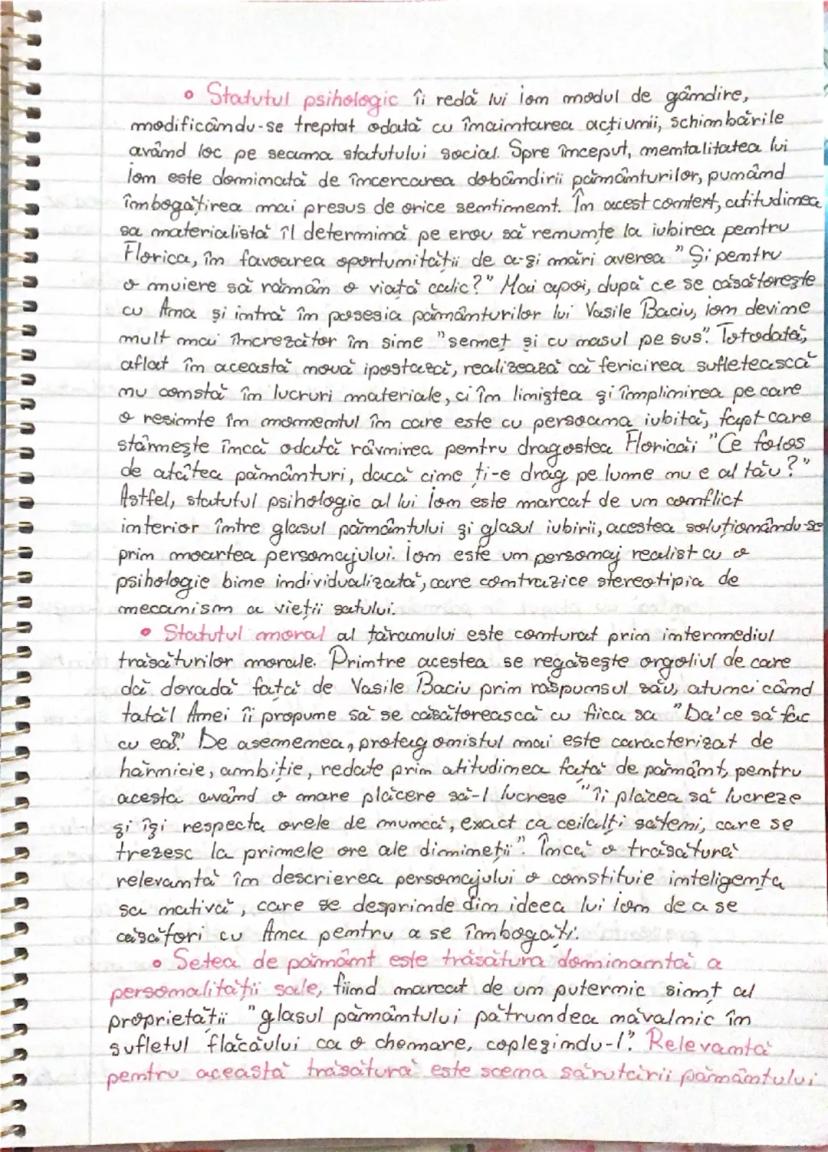 • Statutul psihologic îi redă lui Ion modul de gândire,
modificându-se treptat odată cu înaintarea acțiunii, schimbările
având loc pe seama statutului social. Spre început, mentalitatea lui
Ion este dominată de încercarea dobândirii pământurilor, punând
îmbogățirea mai presus de orice sentiment. În acest context, atitudinea
sa materialistă îl determină pe erou să renunțe la iubirea pentru
Florica, în favoarea oportunității de a-și mări averea "Și pentru
o muiere să rămân o viață calic?" Mai apoi, după ce se căsătorește
cu Ana și intră în posesia pământurilor lui Vasile Baciu, Ion devine
mult mai încrezător în sine "semeț și cu nasul pe sus". Totodată,
aflat în această nouă ipostază, realizează că fericirea sufletească
nu constă în lucruri materiale, ci în liniștea și împlinirea pe care
o resimte în momentul în care este cu persoana iubită, fapt care
stârnește încă odată râvnirea pentru dragostea Floricăi "Ce folos
de atâtea pământuri, dacă cine ți-e drag pe lume nu e al tău?"
Astfel, statutul psihologic al lui Ion este marcat de un conflict
interior între glasul pământului și glasul iubirii, acestea soluționându-se
prin moartea personajului. Ion este un personaj realist cu o
psihologie bine individualizată, care contrazice stereotipia de
mecanism a vieții satului.
• Statutul moral al țăranului este conturat prin intermediul
trăsăturilor morale. Printre acestea se regăsește orgoliul de care
dă dovadă față de Vasile Baciu prin răspunsul său, atunci când
tatăl Anei îi propune să se căsătorească cu fiica sa "Da'ce să fac
cu ea?". De asemenea, protagonistul mai este caracterizat de
hărnicie, ambiție, redate prin atitudinea față de pământ, pentru
acesta având o mare plăcere să-l lucreze "Îi plăcea să lucreze
și își respecta orele de muncă, exact ca ceilalți săteni, care se
trezesc la primele ore ale dimineții". Încă o trăsătură
relevantă în descrierea personajului o constituie inteligența
sa nativă, care se desprinde din ideea lui Ion de a se
căsători cu Ana pentru a se îmbogăți.
• Setea de pământ este trăsătura dominantă a
personalității sale, fiind marcat de un puternic simț al
proprietății "glasul pământului pătrundea năvalnic în
sufletul flăcăului ca o chemare, copleșindu-l". Relevantă
pentru această trăsătură este scena sărutării pământului